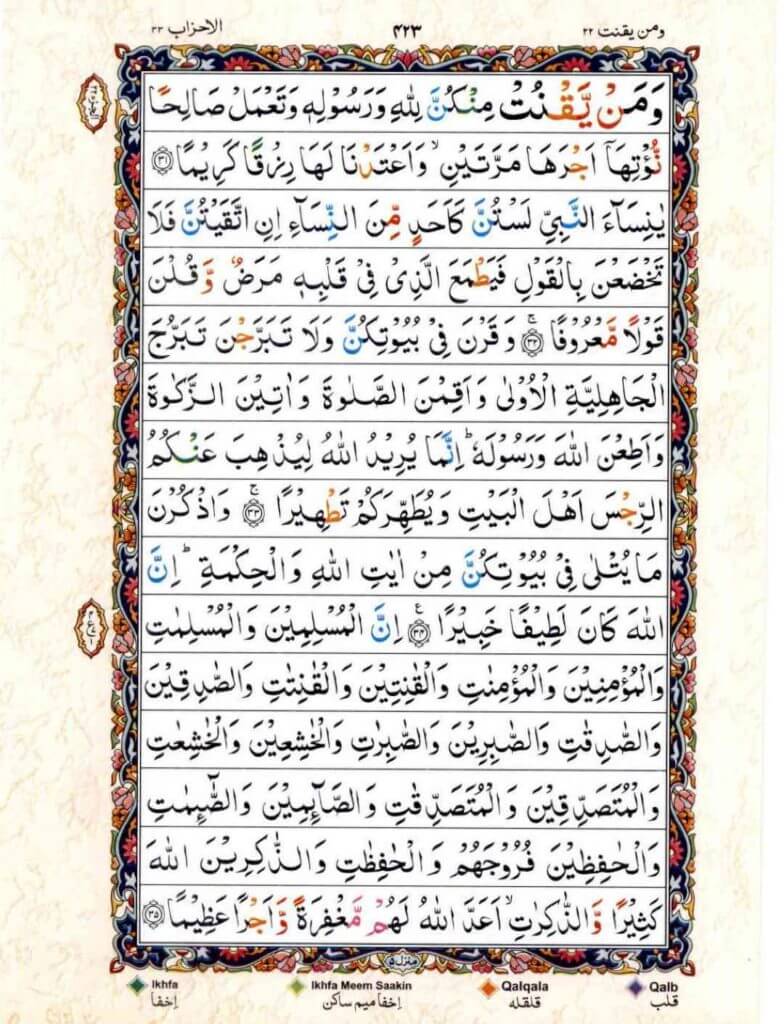 ومن يقنت ۲۲
۴۲۳
الاحزاب ۳۳
وَمَنْ يَّقْنُتْ مِنْكُنَّ لِلّٰهِ وَرَسُوْلِهٖ وَتَعْمَلْ صَالِحًا
نُّؤْتِهَاۤ اَجْرَهَا مَرَّتَيْنِ ۙ وَاَعْتَدْنَا لَهَا رِزْقًا كَرِيْمًا ﴿۳۱﴾
يٰنِسَآءَ النَّبِيِّ لَسْتُنَّ كَاَحَدٍ مِّنَ النِّسَآءِ اِنِ اتَّقَيْتُنَّ فَلَا
تَخْضَعْنَ بِالْقَوْلِ فَيَطْمَعَ الَّذِيْ فِيْ قَلْبِهٖ مَرَضٌ وَّقُلْنَ
قَوْلًا مَّعْرُوْفًا ﴿۳۲﴾ ۚ وَقَرْنَ فِيْ بُيُوْتِكُنَّ وَلَا تَبَرَّجْنَ تَبَرُّجَ
الْجَاهِلِيَّةِ الْاُوْلٰى وَاَقِمْنَ الصَّلٰوةَ وَاٰتِيْنَ الزَّكٰوةَ
وَاَطِعْنَ اللّٰهَ وَرَسُوْلَهٗ ؕ اِنَّمَا يُرِيْدُ اللّٰهُ لِيُذْهِبَ عَنْكُمُ
الرِّجْسَ اَهْلَ الْبَيْتِ وَيُطَهِّرَكُمْ تَطْهِيْرًا ﴿۳۳﴾ ۚ وَاذْكُرْنَ
مَا يُتْلٰى فِيْ بُيُوْتِكُنَّ مِنْ اٰيٰتِ اللّٰهِ وَالْحِكْمَةِ ؕ اِنَّ
اللّٰهَ كَانَ لَطِيْفًا خَبِيْرًا ﴿۳۴﴾ ع اِنَّ الْمُسْلِمِيْنَ وَالْمُسْلِمٰتِ
وَالْمُؤْمِنِيْنَ وَالْمُؤْمِنٰتِ وَالْقٰنِتِيْنَ وَالْقٰنِتٰتِ وَالصّٰدِقِيْنَ
وَالصّٰدِقٰتِ وَالصّٰبِرِيْنَ وَالصّٰبِرٰتِ وَالْخٰشِعِيْنَ وَالْخٰشِعٰتِ
وَالْمُتَصَدِّقِيْنَ وَالْمُتَصَدِّقٰتِ وَالصَّآئِمِيْنَ وَالصّٰٓئِمٰتِ
وَالْحٰفِظِيْنَ فُرُوْجَهُمْ وَالْحٰفِظٰتِ وَالذّٰكِرِيْنَ اللّٰهَ
كَثِيْرًا وَّالذّٰكِرٰتِ ۙ اَعَدَّ اللّٰهُ لَهُمْ مَّغْفِرَةً وَّاَجْرًا عَظِيْمًا ﴿۳۵﴾
منزل ۵
Ikhfa
اخفا
Ikhfa Meem Saakin
اخفا ميم ساكن
Qalqala
قلقله
Qalb
قلب